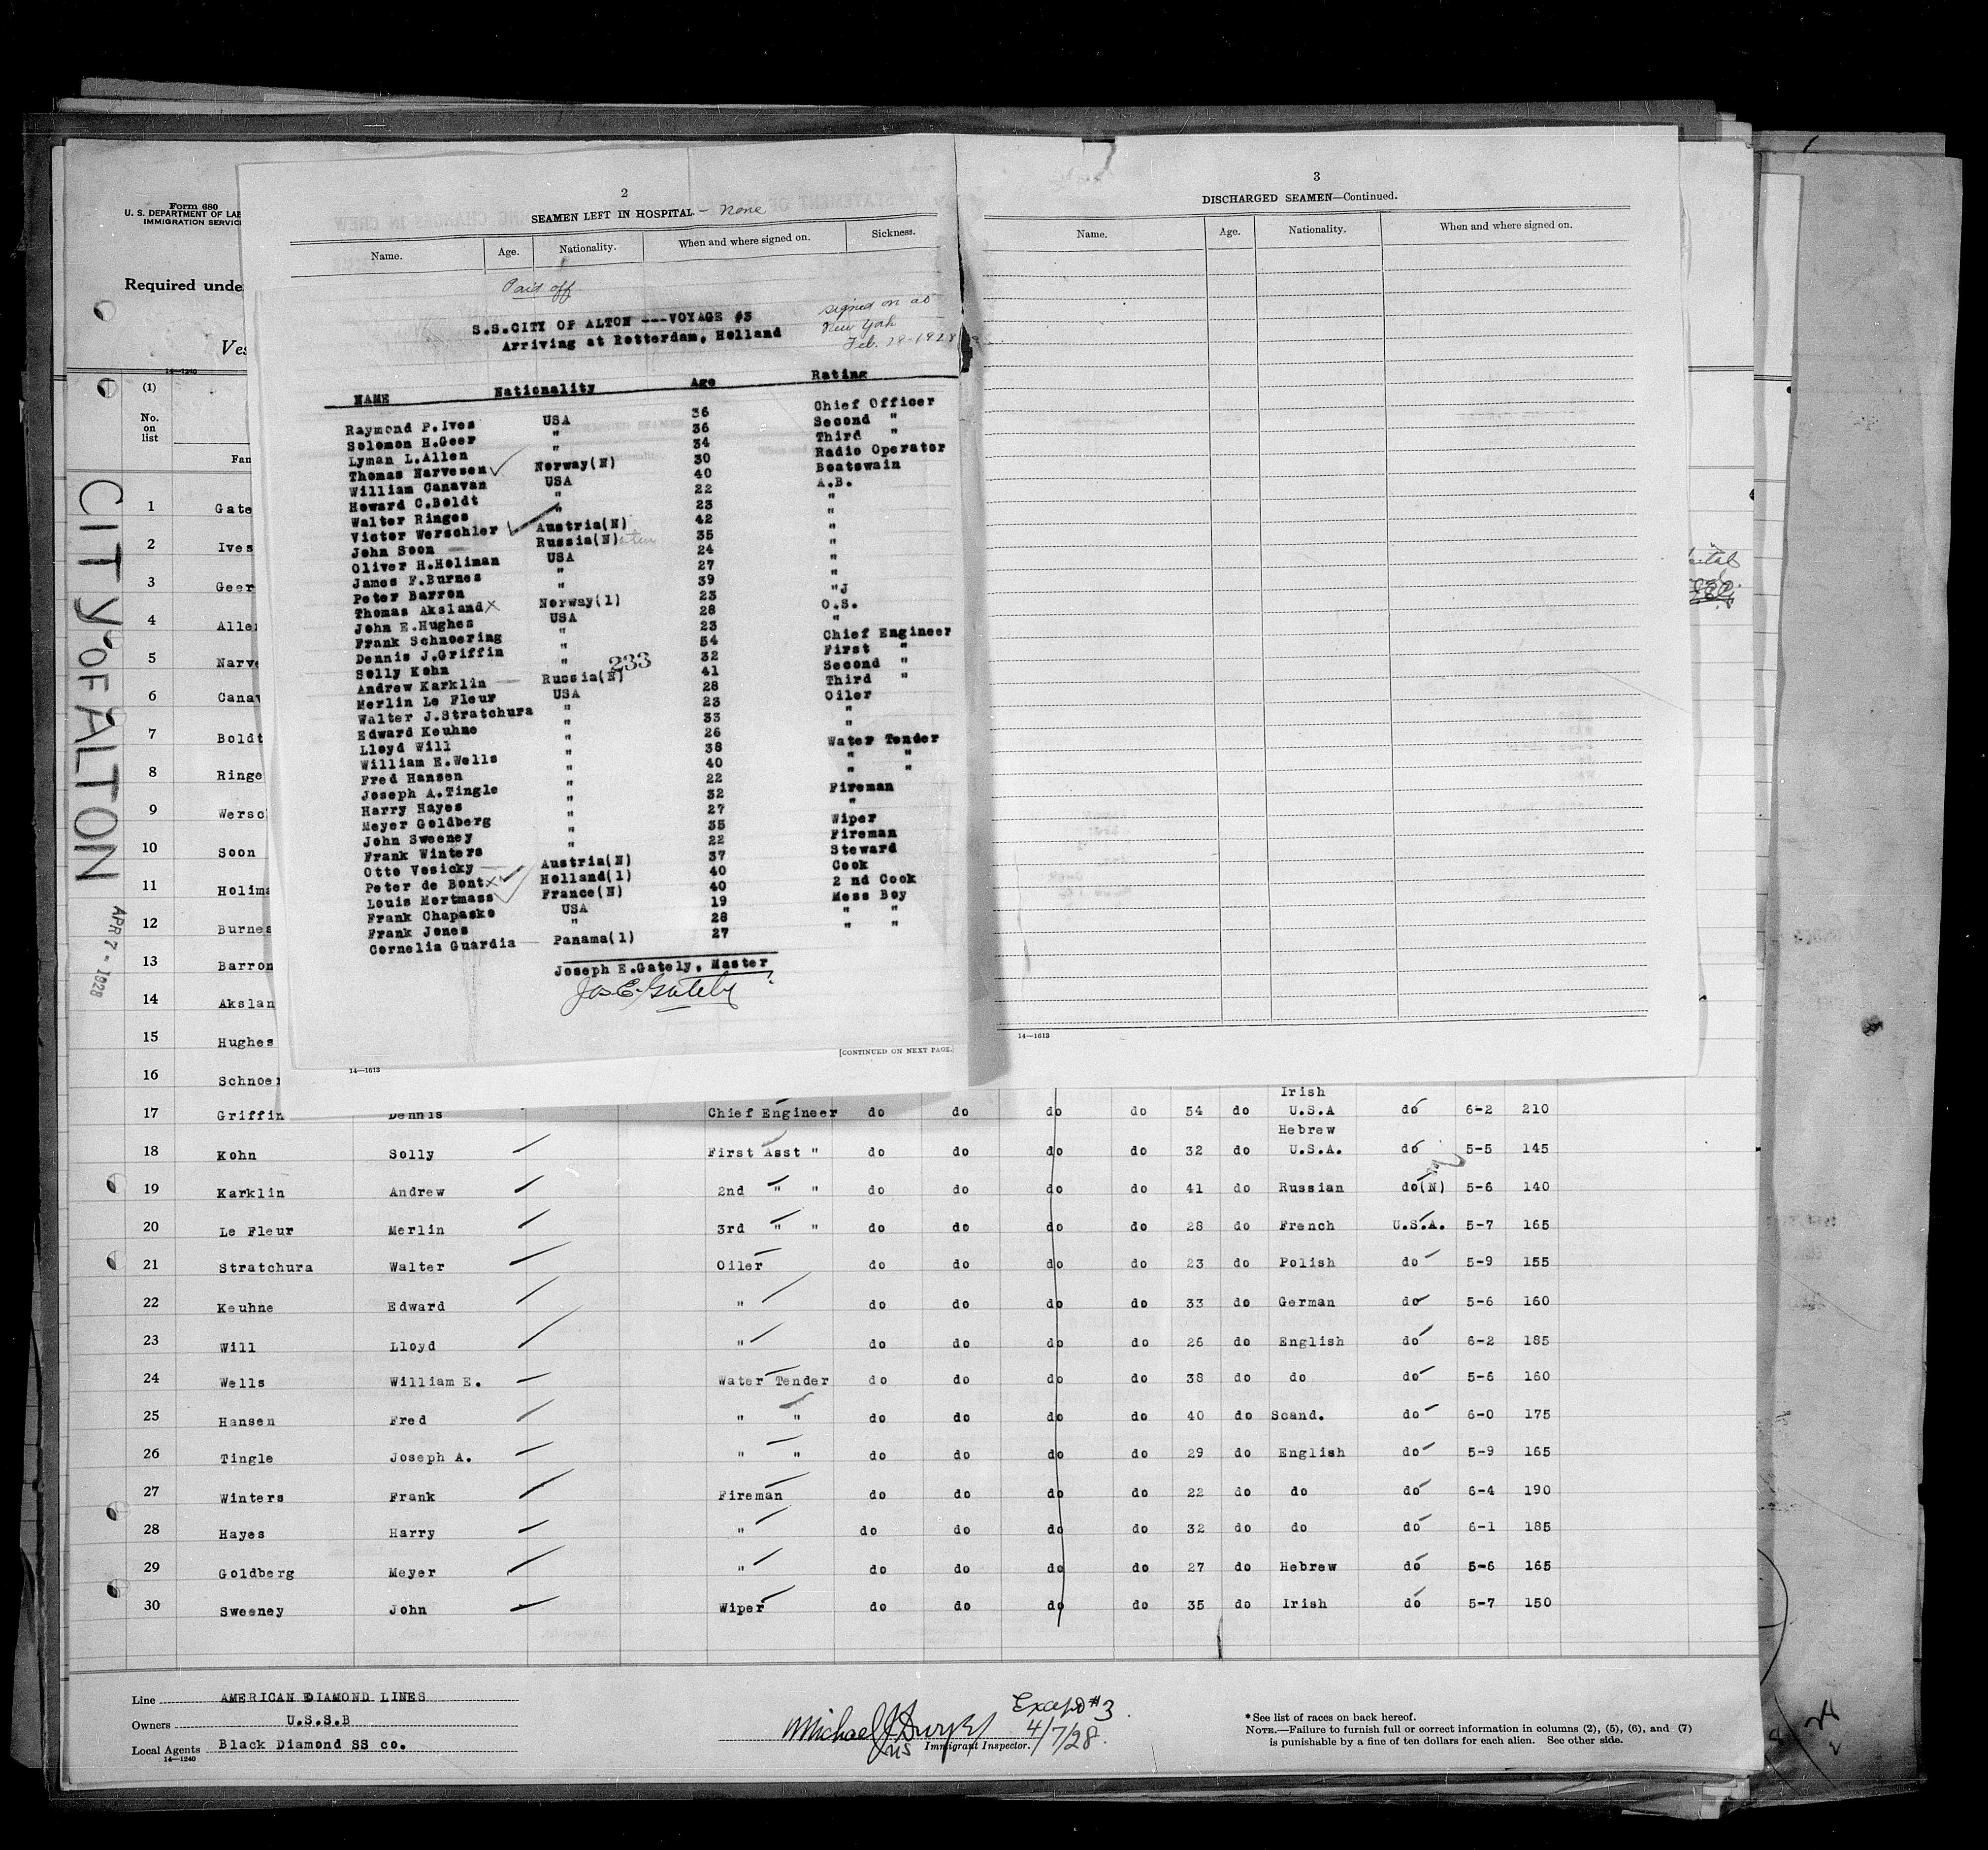 Form 680
U. S. DEPARTMENT OF LAB
IMMIGRATION SERVIC
Required unde
Ves
14—1240
(1)
No.
on
list
Fam
CITY OF ALTON
APR 7 - 1928
2
SEAMEN LEFT IN HOSPITAL - None
Name. Age. Nationality. When and where signed on. Sickness.
Paid off
S.S.CITY OF ALTON ---VOYAGE #3
Arriving at Rotterdam, Holland
signed on at
New York
Feb. 28-1928
NAME Nationality Age Rating
Raymond P.Ives USA 36 Chief Officer
Solomon H.Geer " 36 Second "
Lyman L.Allen " 34 Third "
Thomas Narvesen Norway(N) 30 Radio Operator
William Canavan USA 40 Boatswain
Howard C.Boldt " 22 A.B.
Walter Ringes " 23 "
Victor Werschler Austria(N) 42 "
John Soon Russia(N) 35 "
Oliver H.Holiman USA 24 "
James F.Burnes " 27 "
Peter Barron " 39 "
Thomas Aksland x Norway(1) 23 "J
John E.Hughes USA 28 O.S.
Frank Schnoering " 23 "
Dennis J.Griffin " 54 Chief Engineer
Solly Kohn " 32 First "
233
Andrew Karklin Russia(N) 41 Second "
Merlin Le Fleur USA 28 Third "
Walter J.Stratchura " 23 Oiler
Edward Keuhne " 33 "
Lloyd Will " 26 "
William E.Wells " 38 Water Tender
Fred Hansen " 40 " "
Joseph A.Tingle " 22 " "
Harry Hayes " 32 Fireman
Meyer Goldberg " 27 "
John Sweeney " 35 Wiper
Frank Winters " 22 Fireman
Otto Vesicky Austria(N) 37 Steward
Peter de Bont x Holland(1) 40 Cook
Louis Mortmass France(N) 40 2 nd Cook
Frank Chapasko USA 19 Mess Boy
Frank Jones " 28 " "
Cornelia Guardia Panama(1) 27 " "
Joseph E.Gately, Master
Jos E. Gately
[CONTINUED ON NEXT PAGE.]
14—1613
3
DISCHARGED SEAMEN—Continued.
Name. Age. Nationality. When and where signed on.
14—1613
1 Gate
2 Ives
3 Geer
4 Aller
5 Narve
6 Canav
7 Boldt
8 Ringe
9 Wersc
10 Soon
11 Holima
12 Burnes
13 Barron
14 Akslan
15 Hughes
16 Schnoer
17 Griffin Dennis Chief Engineer do do do do 54 do Irish U.S.A do 6-2 210
18 Kohn Solly First Asst " do do do do 32 do Hebrew U.S.A. do 5-5 145
19 Karklin Andrew 2nd " " do do do do 41 do Russian do(N) 5-6 140
20 Le Fleur Merlin 3rd " " do do do do 28 do French U.S.A. 5-7 165
21 Stratchura Walter Oiler do do do do 23 do Polish do 5-9 155
22 Keuhne Edward " do do do do 33 do German do 5-6 160
23 Will Lloyd " do do do do 26 do English do 6-2 185
24 Wells William E. Water Tender do do do do 38 do do do 5-6 160
25 Hansen Fred " " do do do do 40 do Scand. do 6-0 175
26 Tingle Joseph A. " " do do do do 29 do English do 5-9 165
27 Winters Frank Fireman do do do do 22 do do do 6-4 190
28 Hayes Harry " do do do do 32 do do do 6-1 185
29 Goldberg Meyer " do do do do 27 do Hebrew do 5-6 165
30 Sweeney John Wiper do do do do 35 do Irish do 5-7 150
Line AMERICAN DIAMOND LINES
Owners U.S.S.B
Local Agents Black Diamond SS co.
14—1240
Except #3
4/7/28.
Immigrant Inspector.
* See list of races on back hereof.
NOTE.—Failure to furnish full or correct information in columns (2), (5), (6), and (7)
is punishable by a fine of ten dollars for each alien. See other side.